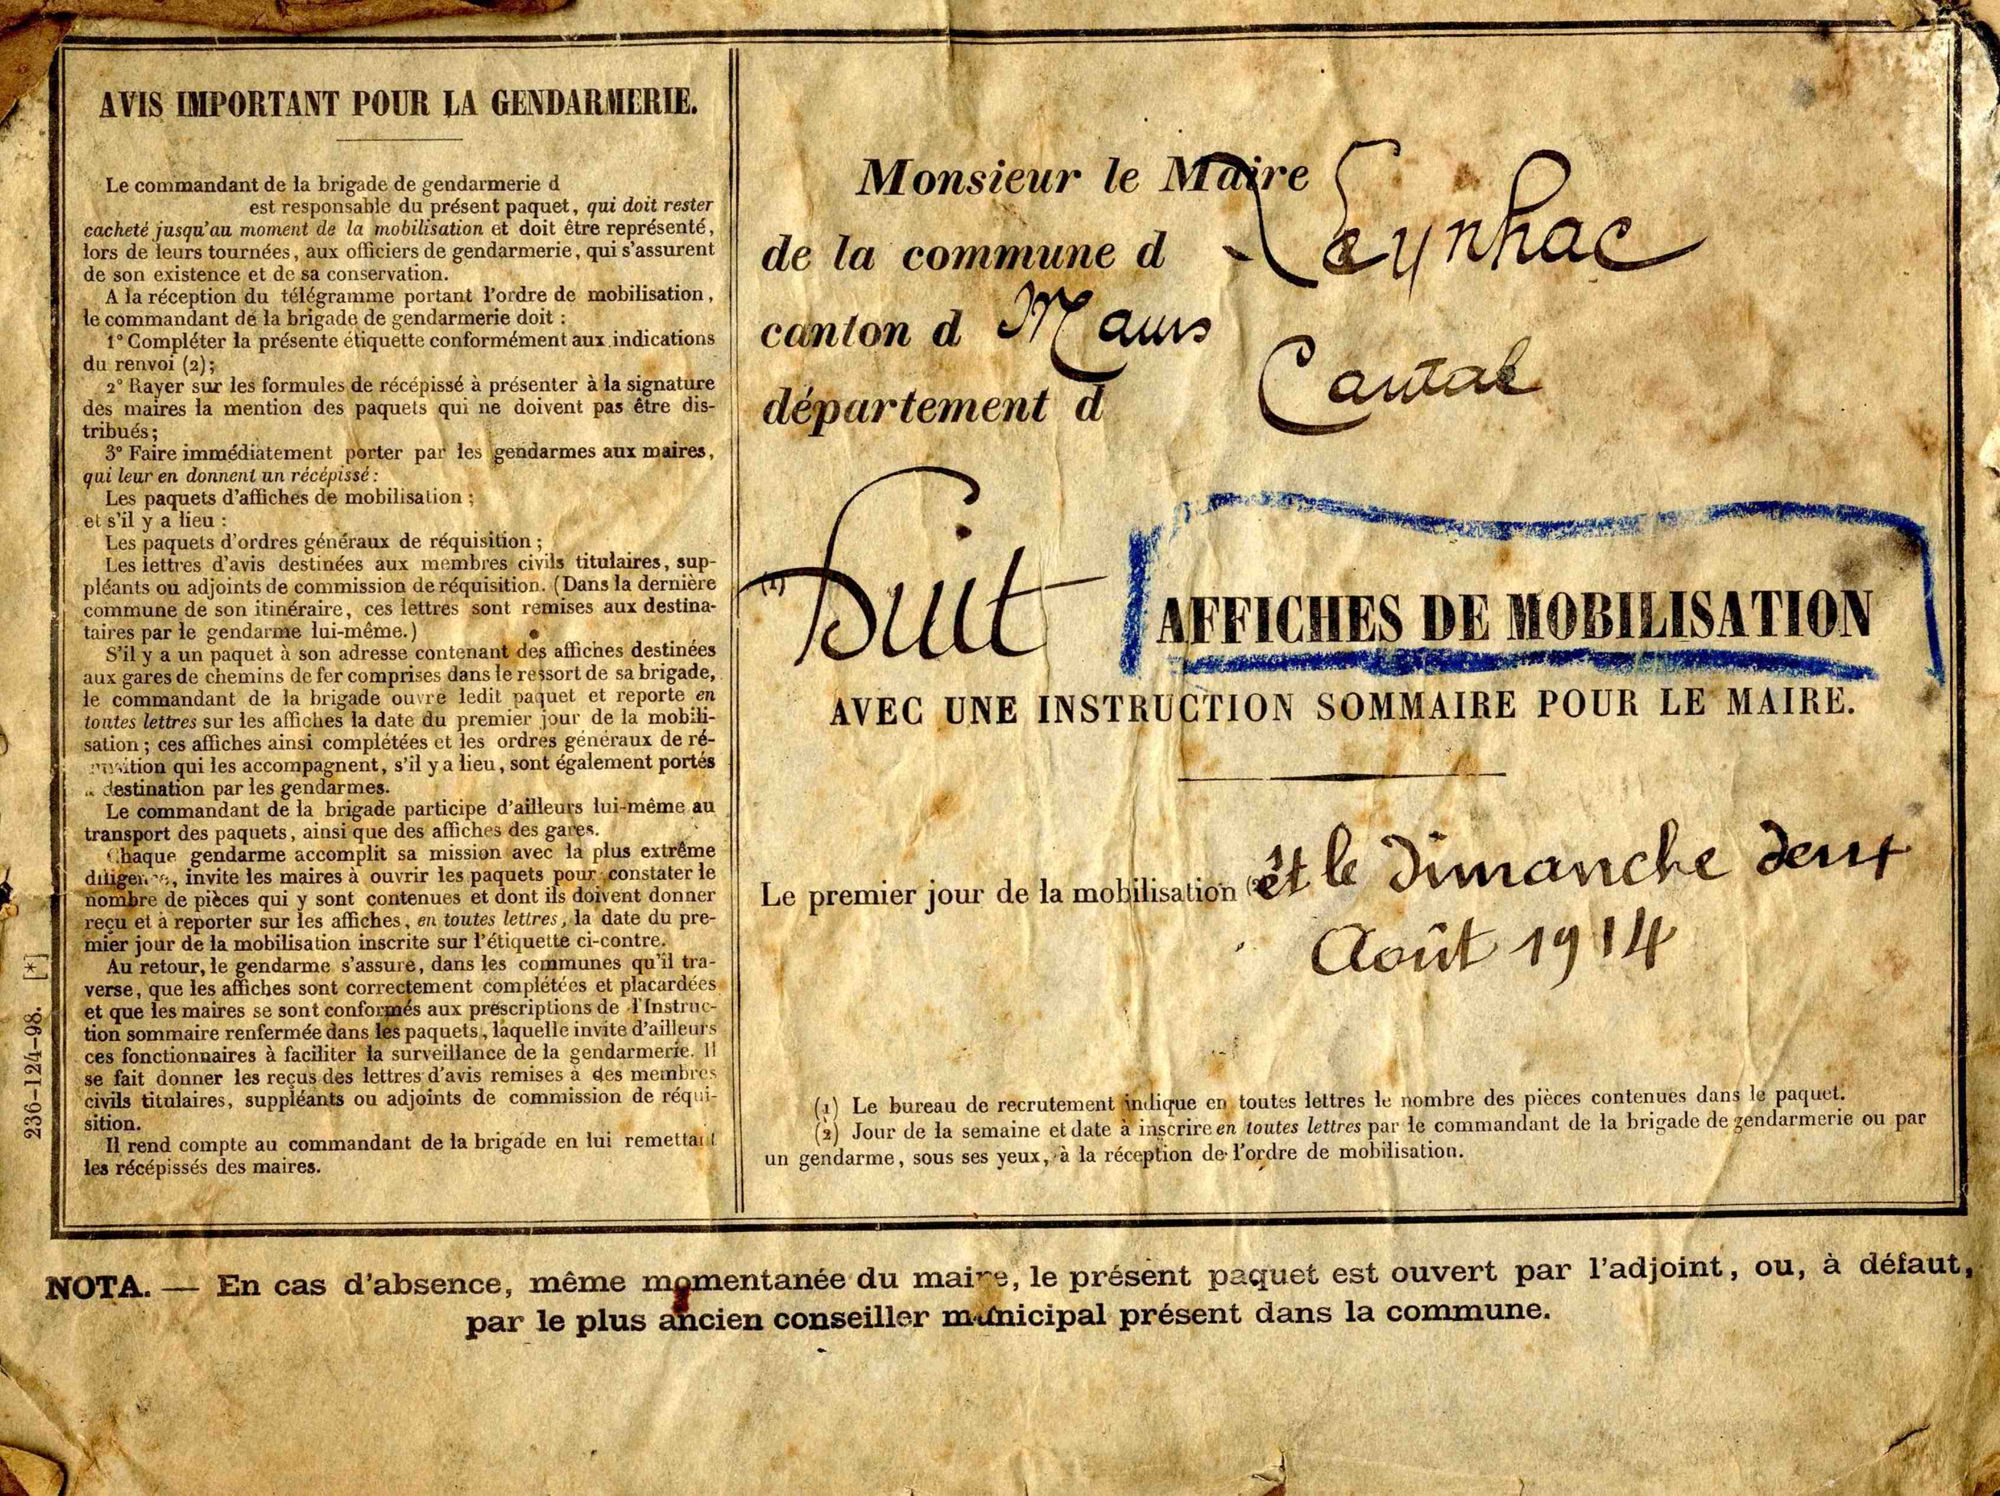 AVIS IMPORTANT POUR LA GENDARMERIE.
Le commandant de la brigade de gendarmerie d
est responsable du présent paquet, qui doit rester
cacheté jusqu'au moment de la mobilisation et doit être représenté,
lors de leurs tournées, aux officiers de gendarmerie, qui s'assurent
de son existence et de sa conservation.
A la réception du télégramme portant l'ordre de mobilisation,
le commandant de la brigade de gendarmerie doit :
1° Compléter la présente étiquette conformément aux indications
du renvoi (2);
2° Rayer sur les formules de récépissé à présenter à la signature
des maires la mention des paquets qui ne doivent pas être dis-
tribués;
3° Faire immédiatement porter par les gendarmes aux maires,
qui leur en donnent un récépissé :
Les paquets d'affiches de mobilisation ;
et s'il y a lieu :
Les paquets d'ordres généraux de réquisition ;
Les lettres d'avis destinées aux membres civils titulaires, sup-
pléants ou adjoints de commission de réquisition. (Dans la dernière
commune de son itinéraire, ces lettres sont remises aux destina-
taires par le gendarme lui-même.)
S'il y a un paquet à son adresse contenant des affiches destinées
aux gares de chemins de fer comprises dans le ressort de sa brigade,
le commandant de la brigade ouvre ledit paquet et reporte en
toutes lettres sur les affiches la date du premier jour de la mobili-
sation ; ces affiches ainsi complétées et les ordres généraux de ré-
quisition qui les accompagnent, s'il y a lieu, sont également portés
à destination par les gendarmes.
Le commandant de la brigade participe d'ailleurs lui-même au
transport des paquets, ainsi que des affiches des gares.
Chaque gendarme accomplit sa mission avec la plus extrême
diligence, invite les maires à ouvrir les paquets pour constater le
nombre de pièces qui y sont contenues et dont ils doivent donner
reçu et à reporter sur les affiches, en toutes lettres, la date du pre-
mier jour de la mobilisation inscrite sur l'étiquette ci-contre.
Au retour, le gendarme s'assure, dans les communes qu'il tra-
verse, que les affiches sont correctement complétées et placardées
et que les maires se sont conformés aux prescriptions de l'Instruc-
tion sommaire renfermée dans les paquets, laquelle invite d'ailleurs
ces fonctionnaires à faciliter la surveillance de la gendarmerie. Il
se fait donner les reçus des lettres d'avis remises à des membres
civils titulaires, suppléants ou adjoints de commission de réqui-
sition.
Il rend compte au commandant de la brigade en lui remettant
les récépissés des maires.
236-124-98. [*]
Monsieur le Maire
de la commune d Leynhac
canton d Maurs
département d Cantal
(1) Huit AFFICHES DE MOBILISATION
AVEC UNE INSTRUCTION SOMMAIRE POUR LE MAIRE.
Le premier jour de la mobilisation (2) est le Dimanche deux
Août 1914
(1) Le bureau de recrutement indique en toutes lettres le nombre des pièces contenues dans le paquet.
(2) Jour de la semaine et date à inscrire en toutes lettres par le commandant de la brigade de gendarmerie ou par
un gendarme, sous ses yeux, à la réception de l'ordre de mobilisation.
NOTA. — En cas d'absence, même momentanée du maire, le présent paquet est ouvert par l'adjoint, ou, à défaut,
par le plus ancien conseiller municipal présent dans la commune.